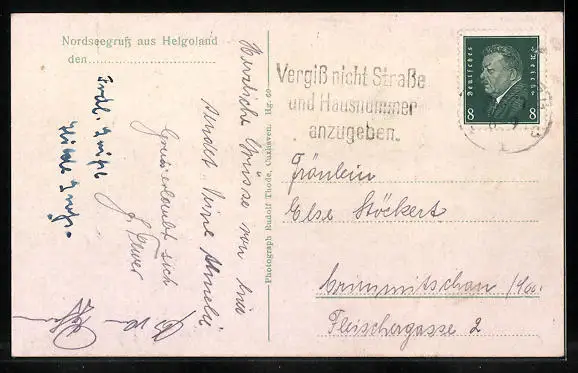 Nordseegruß aus Helgoland
den
Herzliche Grüsse von hier
sendet Deine Amelie
Gruss erlaubt sich
Frdl. Grüße
Photograph Rudolf Thode, Cuxhaven. Hg. 60
Vergiß nicht Straße
und Hausnummer
anzugeben.
Deutsches Reich
8 8
Fräulein
Else Stöckert
Crimmitschau i/Sa.
Fleischergasse 2